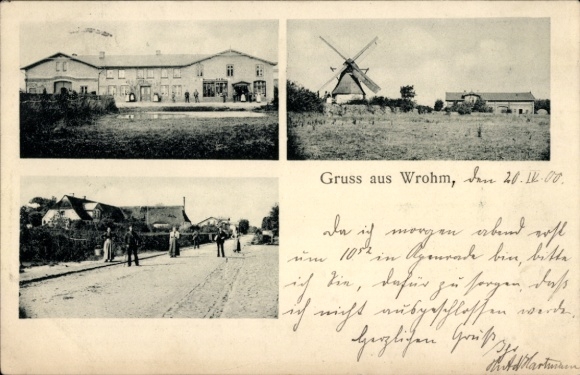 Gruss aus Wrohm, den 20. IV. 00.
Da ich morgen abend erst
um 10 52 in Apenrade bin, bitte
ich Sie, dafür zu sorgen, daß
ich nicht ausgeschlossen werde.
Herzlichen Gruß
Ihr